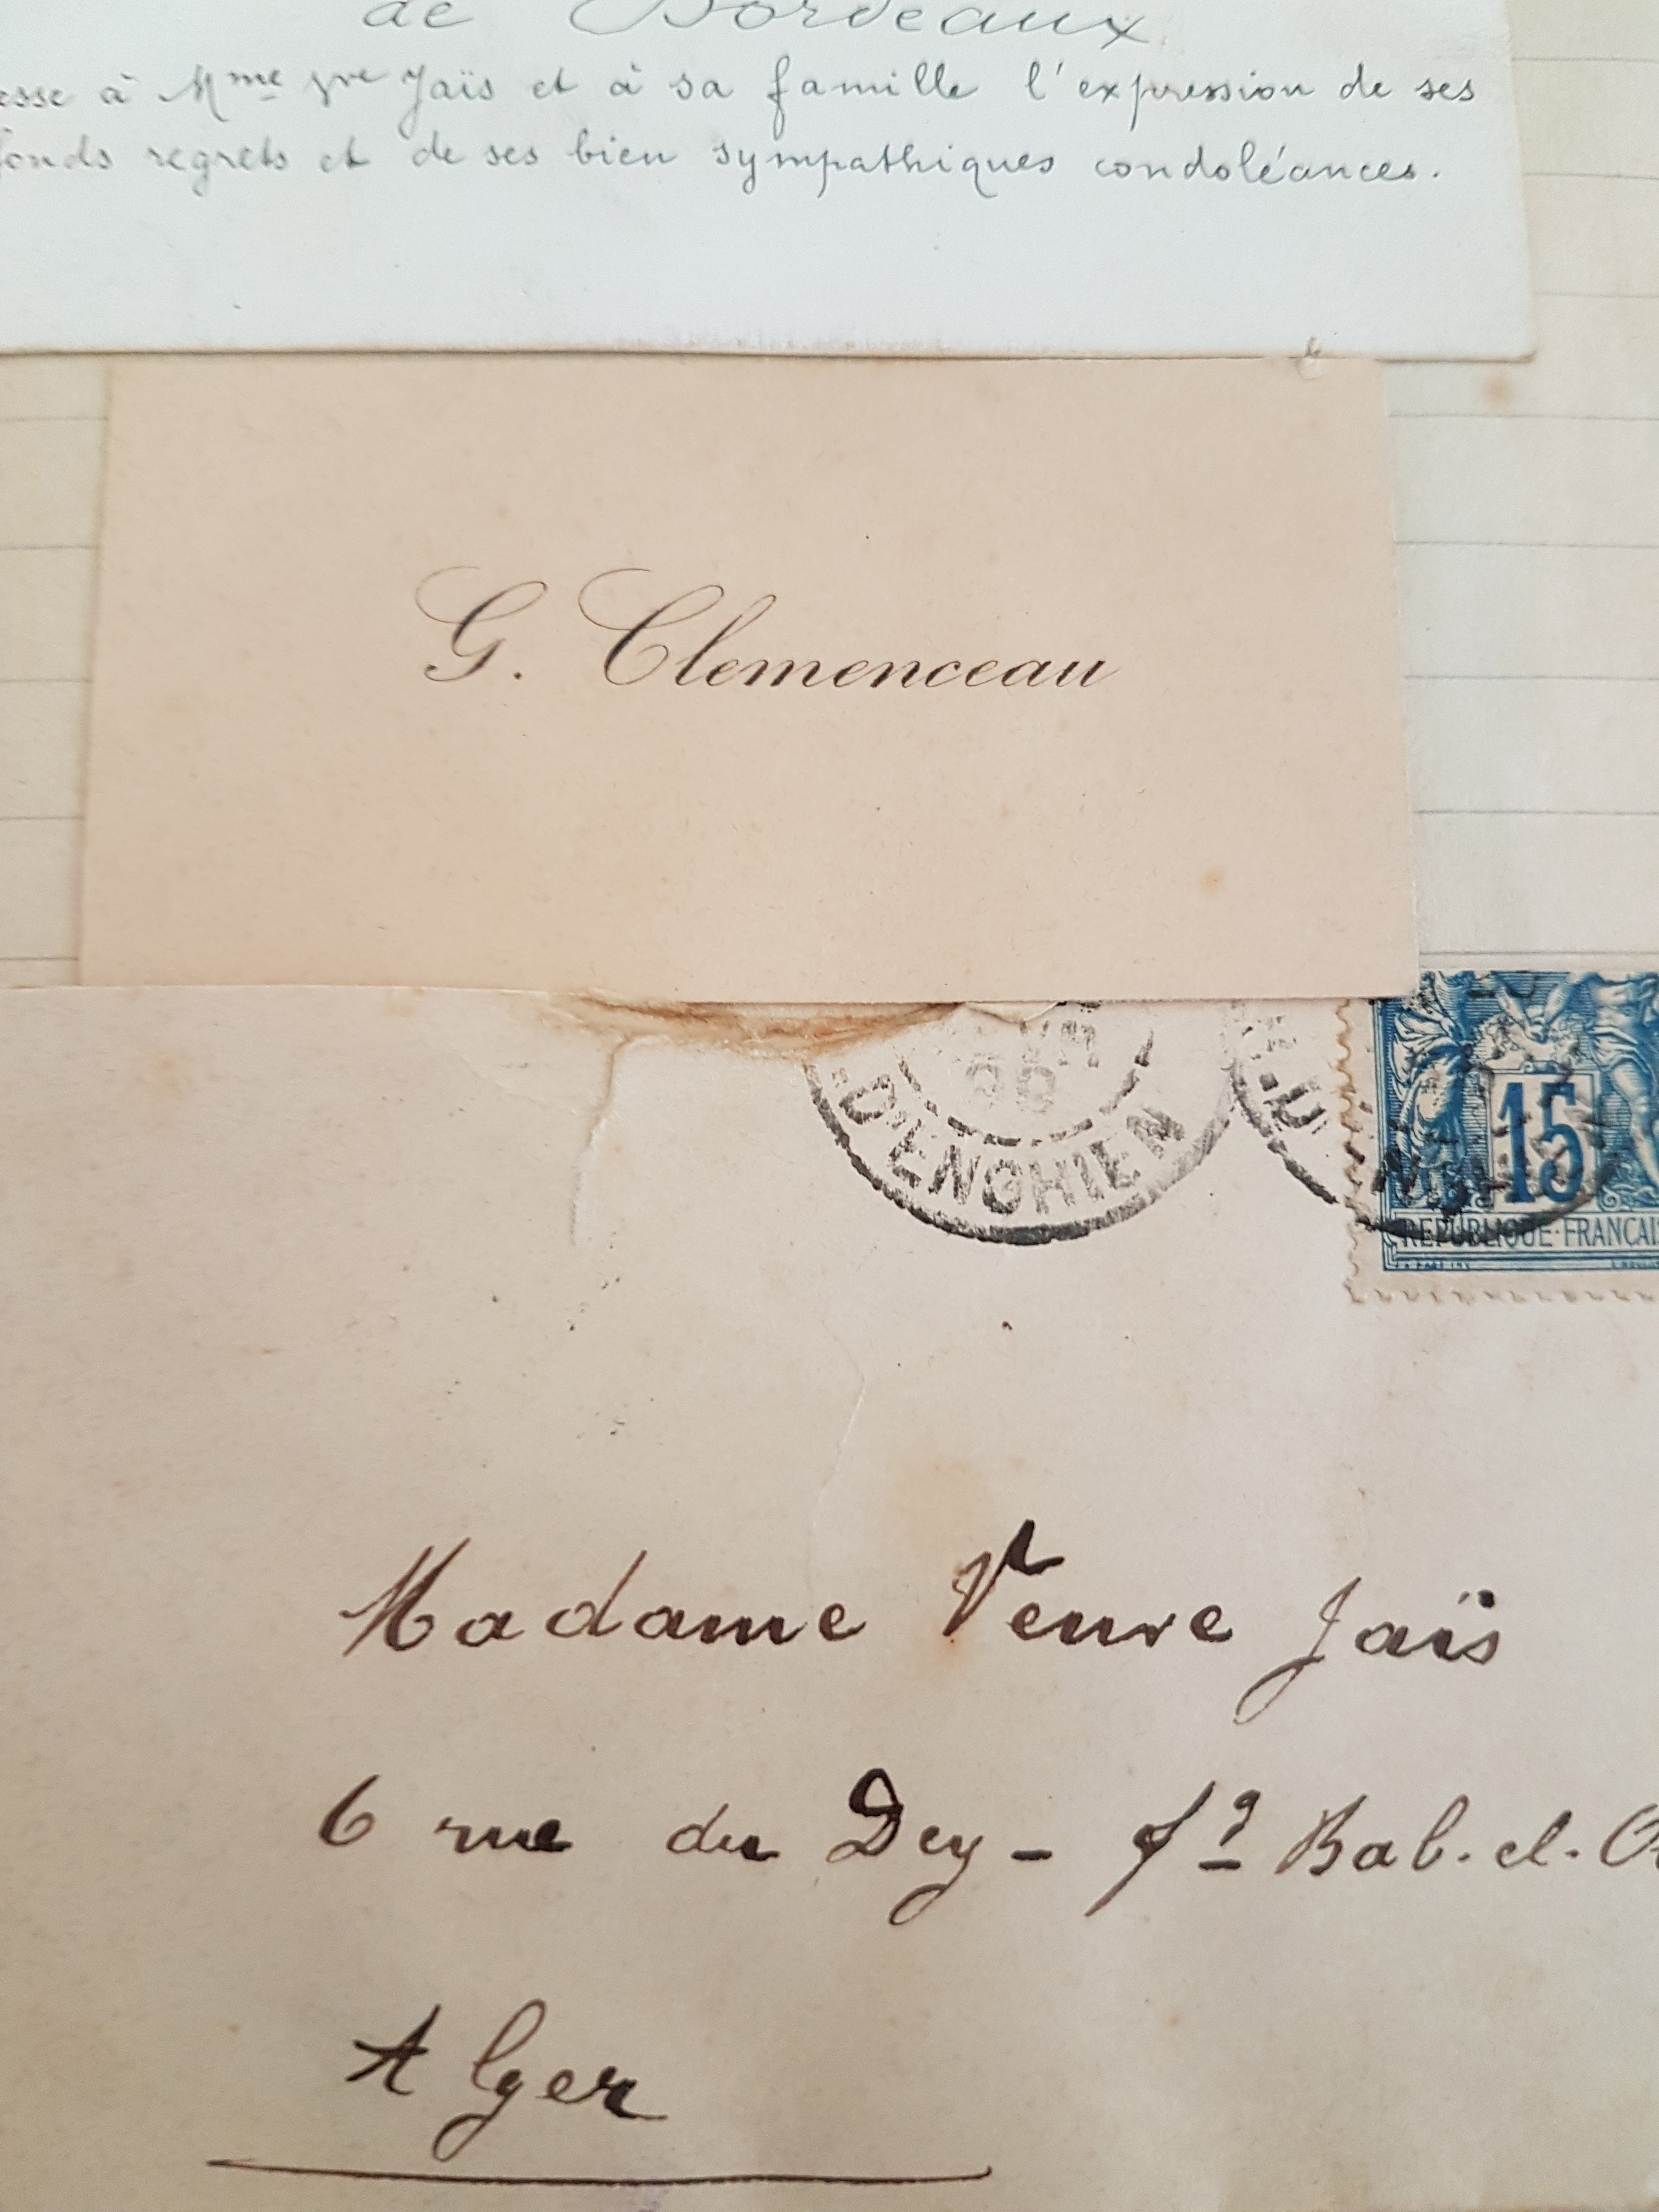 de Bordeaux
esse à Mme Vve Jaïs et à sa famille l'expression de ses
fonds regrets et de ses bien sympathiques condoléances.
G. Clemenceau
D'ENGHIEN
15
REPUBLIQUE FRANCAI
Madame Veuve Jaïs
6 rue du Dey - fg Bab-el-O
Alger